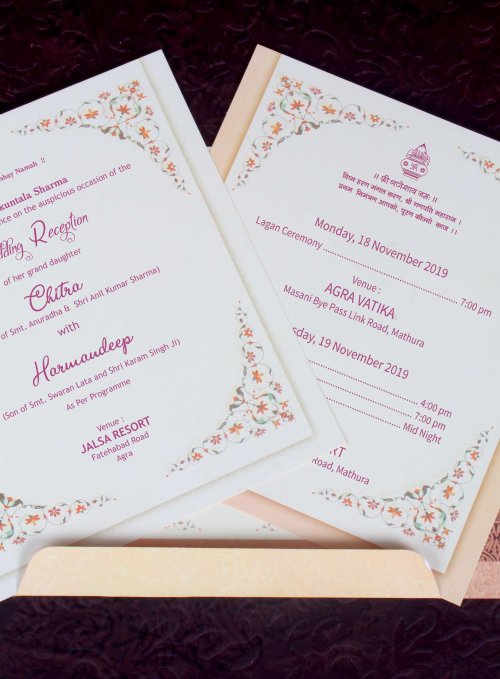 shay Namah !!
kuntala Sharma
nce on the auspicious occasion of the
dding Reception
of her grand daughter
Chitra
of Smt. Anuradha & Shri Anil Kumar Sharma)
with
Harmandeep
(Son of Smt. Swaran Lata and Shri Karam Singh Ji)
As Per Programme
Venue :
JALSA RESORT
Fatehabad Road
Agra
।। श्री गणेशाय नमः ।।
विघ्न हरण मंगल करण, श्री गणपति महाराज।
प्रथम निमंत्रण आपको, पूरण कीज्यो काज ।।
Monday, 18 November 2019
Lagan Ceremony ........ 7:00 pm
Venue :
AGRA VATIKA
Masani Bye Pass Link Road, Mathura
sday, 19 November 2019
4:00 pm
7:00 pm
Mid Night
RT
Road, Mathura